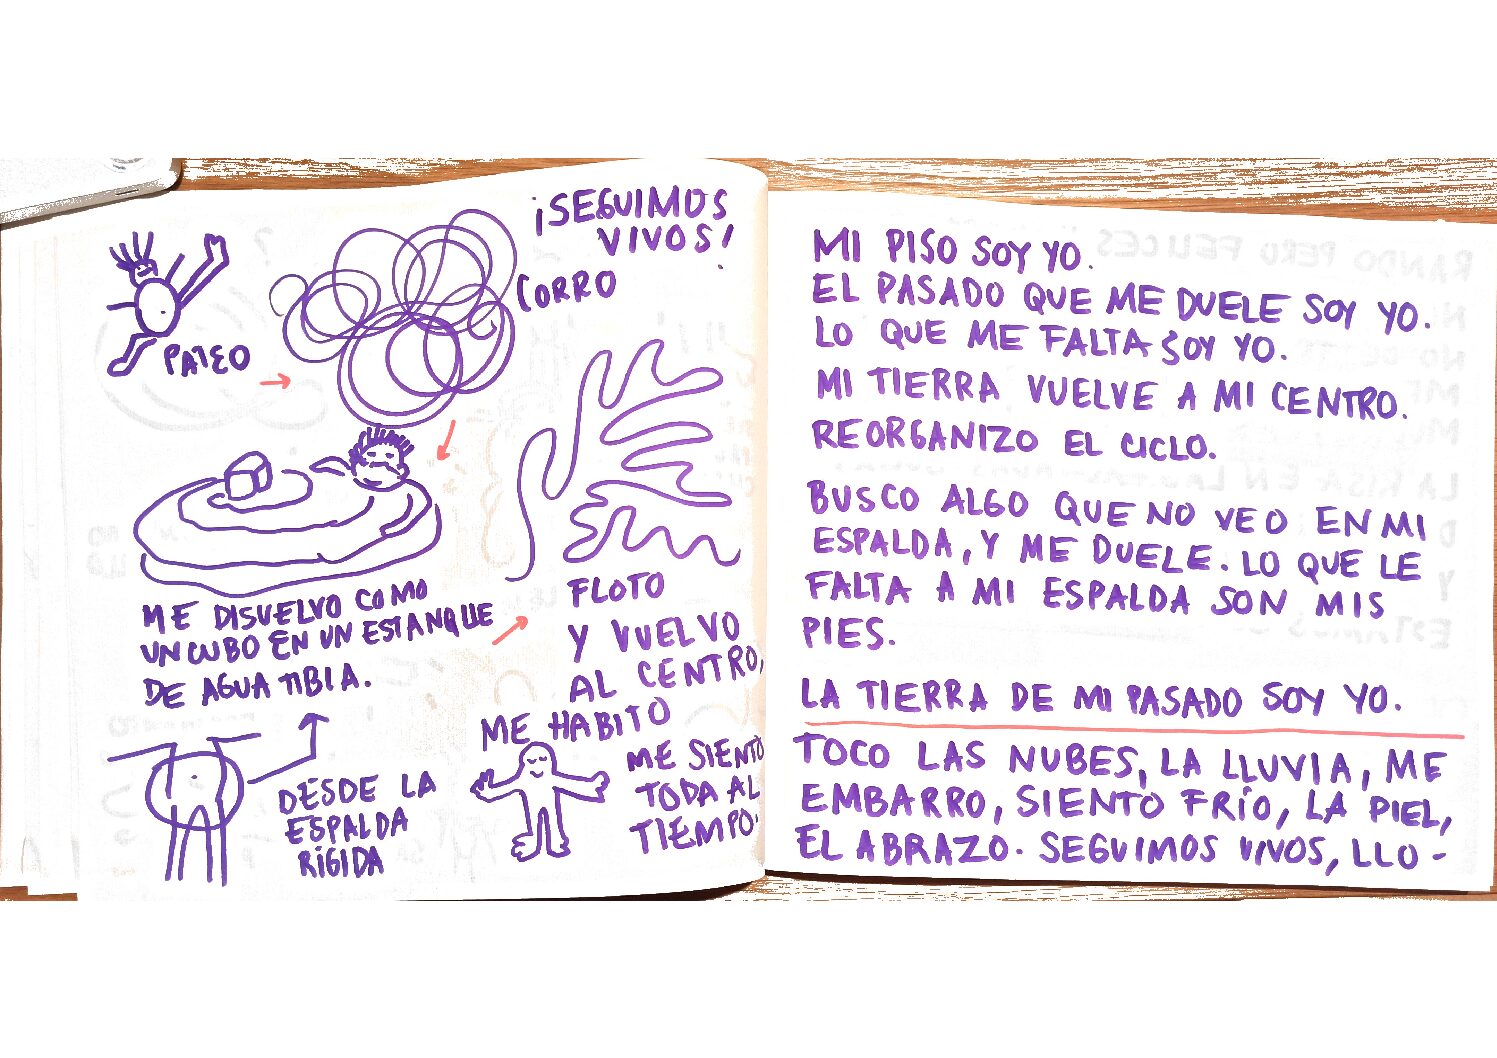 ¡SEGUIMOS
VIVOS!
CORRO
PATEO
ME DISUELVO COMO
UN CUBO EN UN ESTANQUE
DE AGUA TIBIA.
FLOTO
Y VUELVO
AL CENTRO,
ME HABITO
ME SIENTO
TODA AL
TIEMPO.
DESDE LA
ESPALDA
RÍGIDA
MI PISO SOY YO.
EL PASADO QUE ME DUELE SOY YO.
LO QUE ME FALTA SOY YO.
MI TIERRA VUELVE A MI CENTRO.
REORGANIZO EL CICLO.
BUSCO ALGO QUE NO VEO EN MI
ESPALDA, Y ME DUELE. LO QUE LE
FALTA A MI ESPALDA SON MIS
PIES.
LA TIERRA DE MI PASADO SOY YO.
TOCO LAS NUBES, LA LLUVIA, ME
EMBARRO, SIENTO FRÍO, LA PIEL,
EL ABRAZO. SEGUIMOS VIVOS, LLO-